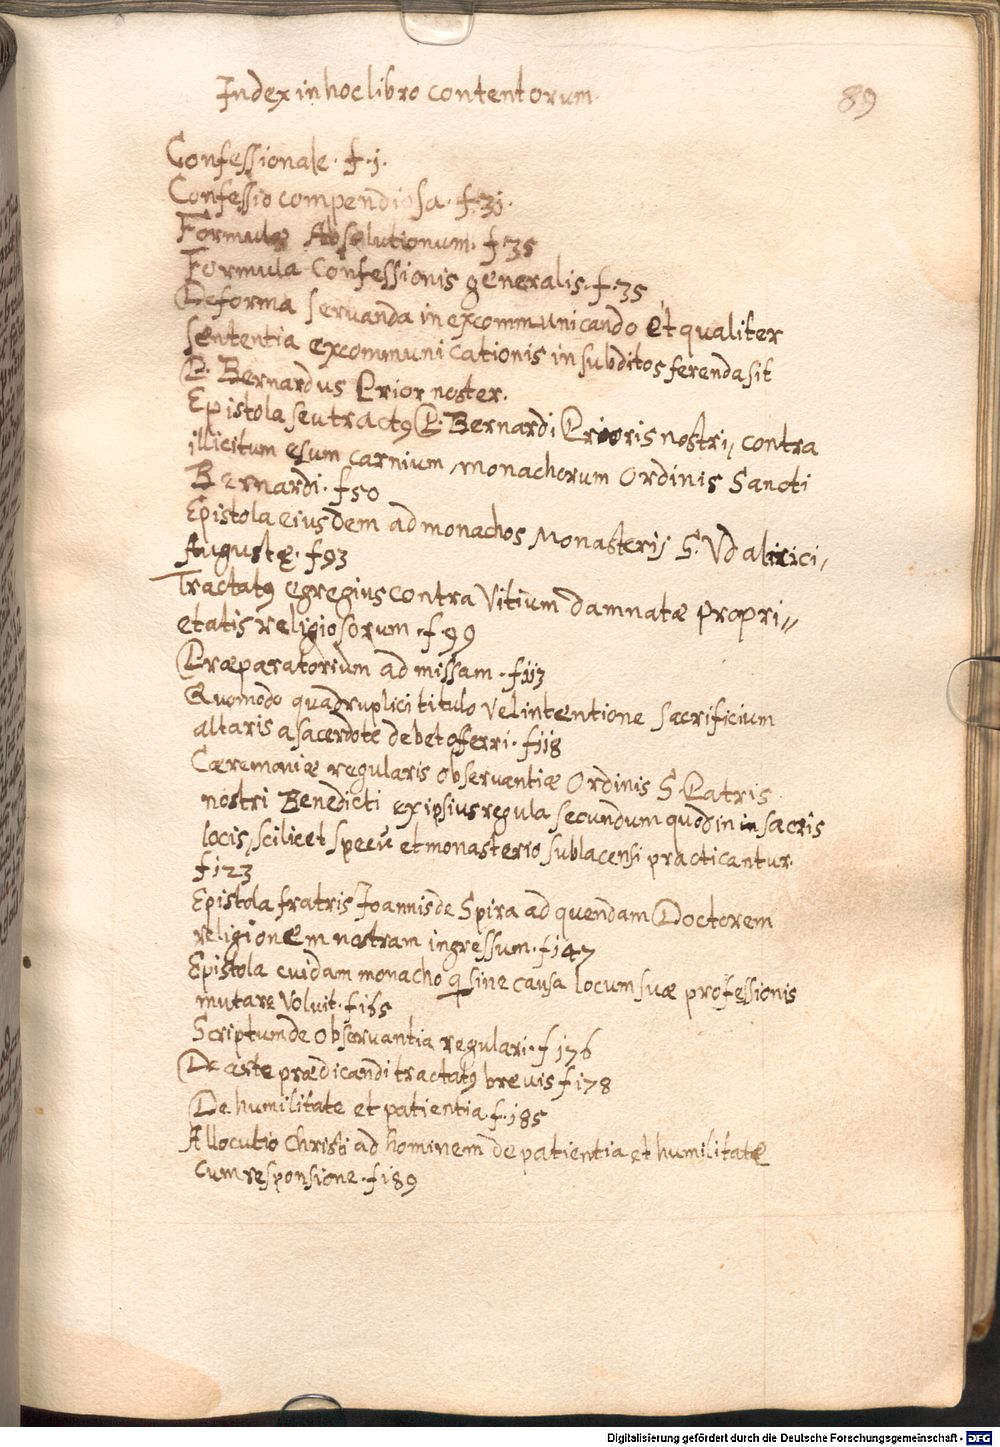 Index in hoc libro contentorum.
89
Confessionale. f. j.
Confessio compendiosa. f. 3j.
Formulæ Absolutionum. f. 35
Formula Confessionis generalis. f. 35
De forma servanda in excommunicando et qualiter
sententia excommunicationis in subditos ferenda sit
P. Bernardus Prior noster.
Epistola seu tractꝰ P. Bernardi Prioris nostri, contra
illicitum esum carnium, monachorum Ordinis Sancti
Bernardi. f 50
Epistola eiusdem ad monachos Monasterij S. Vdalrici,
Augustæ. f 93
Tractatꝰ egregius contra Vitium damnatæ propri//
etatis religiosorum. f. 99
Præparatorium ad missam. f 113
Quomodo quadruplici titulo vel intentione sacrificium
altaris a sacerdote debet offerri. f 118
Cæremoniæ regularis observantiæ Ordinis S. Patris
nostri Benedicti ex ipsius regula secundum quod in in sacris
locis, scilicet specu et monasterio sublacensi practicantur.
f 123
Epistola fratris Joannis de Spira ad quendam Doctorem
religionem nostram ingressum. f 147
Epistola cuidam monacho q sine causa locum suæ professionis
mutare voluit. f 165
Scriptum de observantia regulari. f 176
De arte prædicandi tractatꝰ brevis f 178
De humilitate et patientia. f. 185
Allocutio Christi ad hominem de patientia et humilitate
cum responsione. f 189
Digitalisierung gefördert durch die Deutsche Forschungsgemeinschaft - DFG